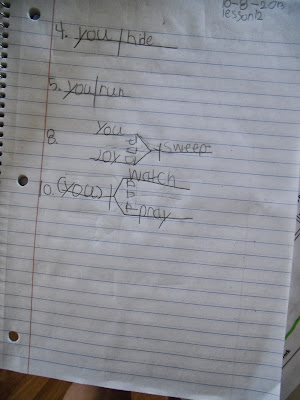 10-8-2013
lesson 12
4. you hide
5. you run
8. you
and
Joy sweep
watch
10. (you) and
pray